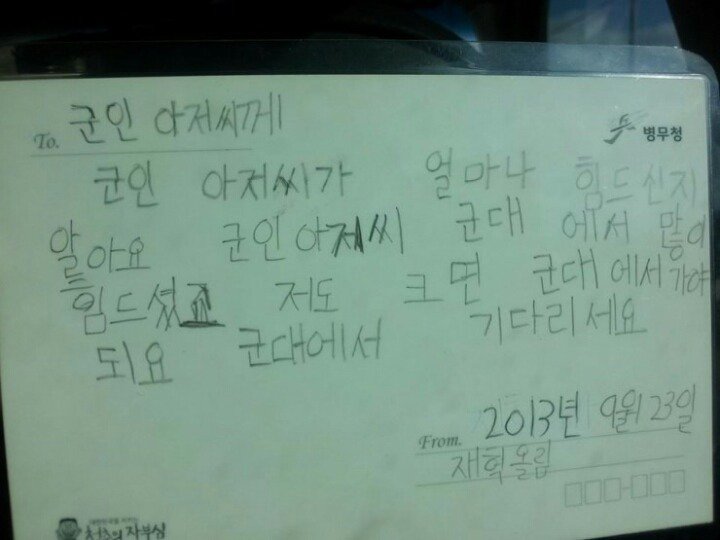 To. 군인 아저씨께
병무청
군인 아저씨가 얼마나 힘드신지
알아요 군인아저씨 군대에서 많이
힘드셨고 저도 크면 군대에서 가야
되요 군대에서 기다리세요
From. 2013년 9월 23일
재혁올림
자부심